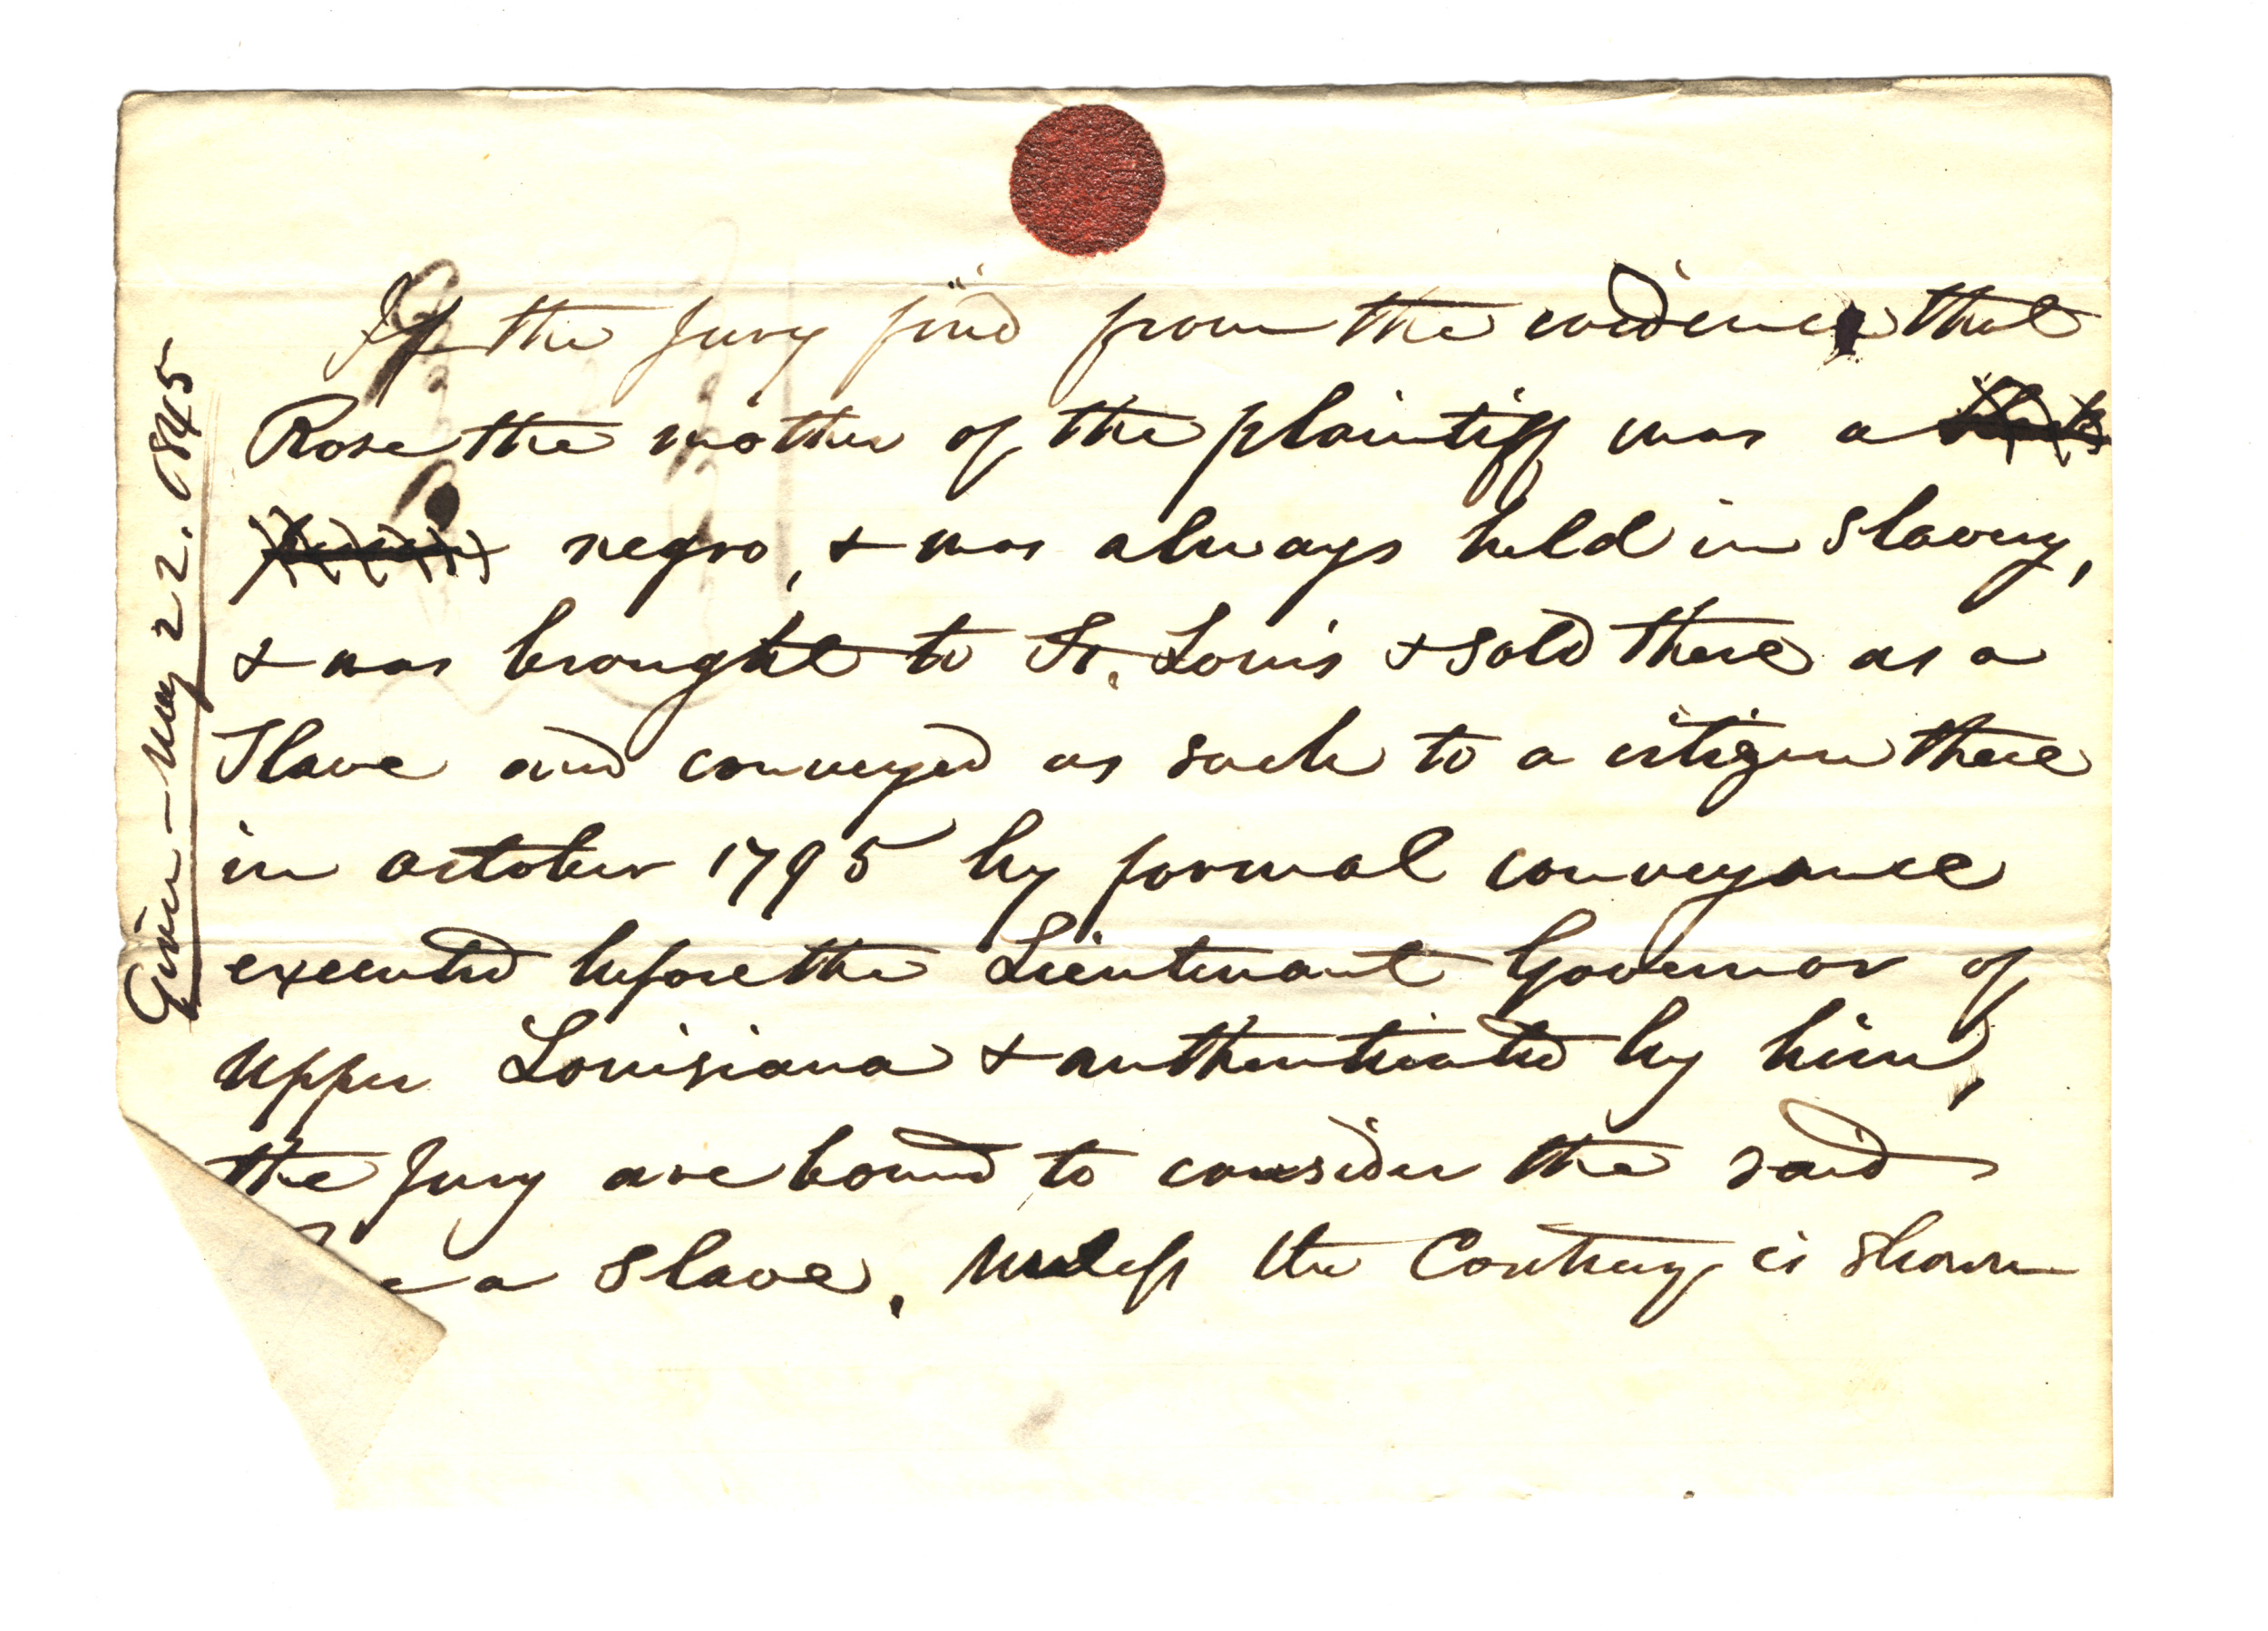 If the Jury find from the evidence that
Rose the mother of the plaintiff was a
negro, & was always held in slavery,
& was brought to St. Louis & sold there as a
Slave and conveyed as such to a citizen there
in october 1795 by formal conveyance
executed before the Lieutenant Governor of
Upper Louisiana & authenticated by him,
the Jury are bound to consider the said
a slave, unless the Contrary is shown
Given - May 22. 1845